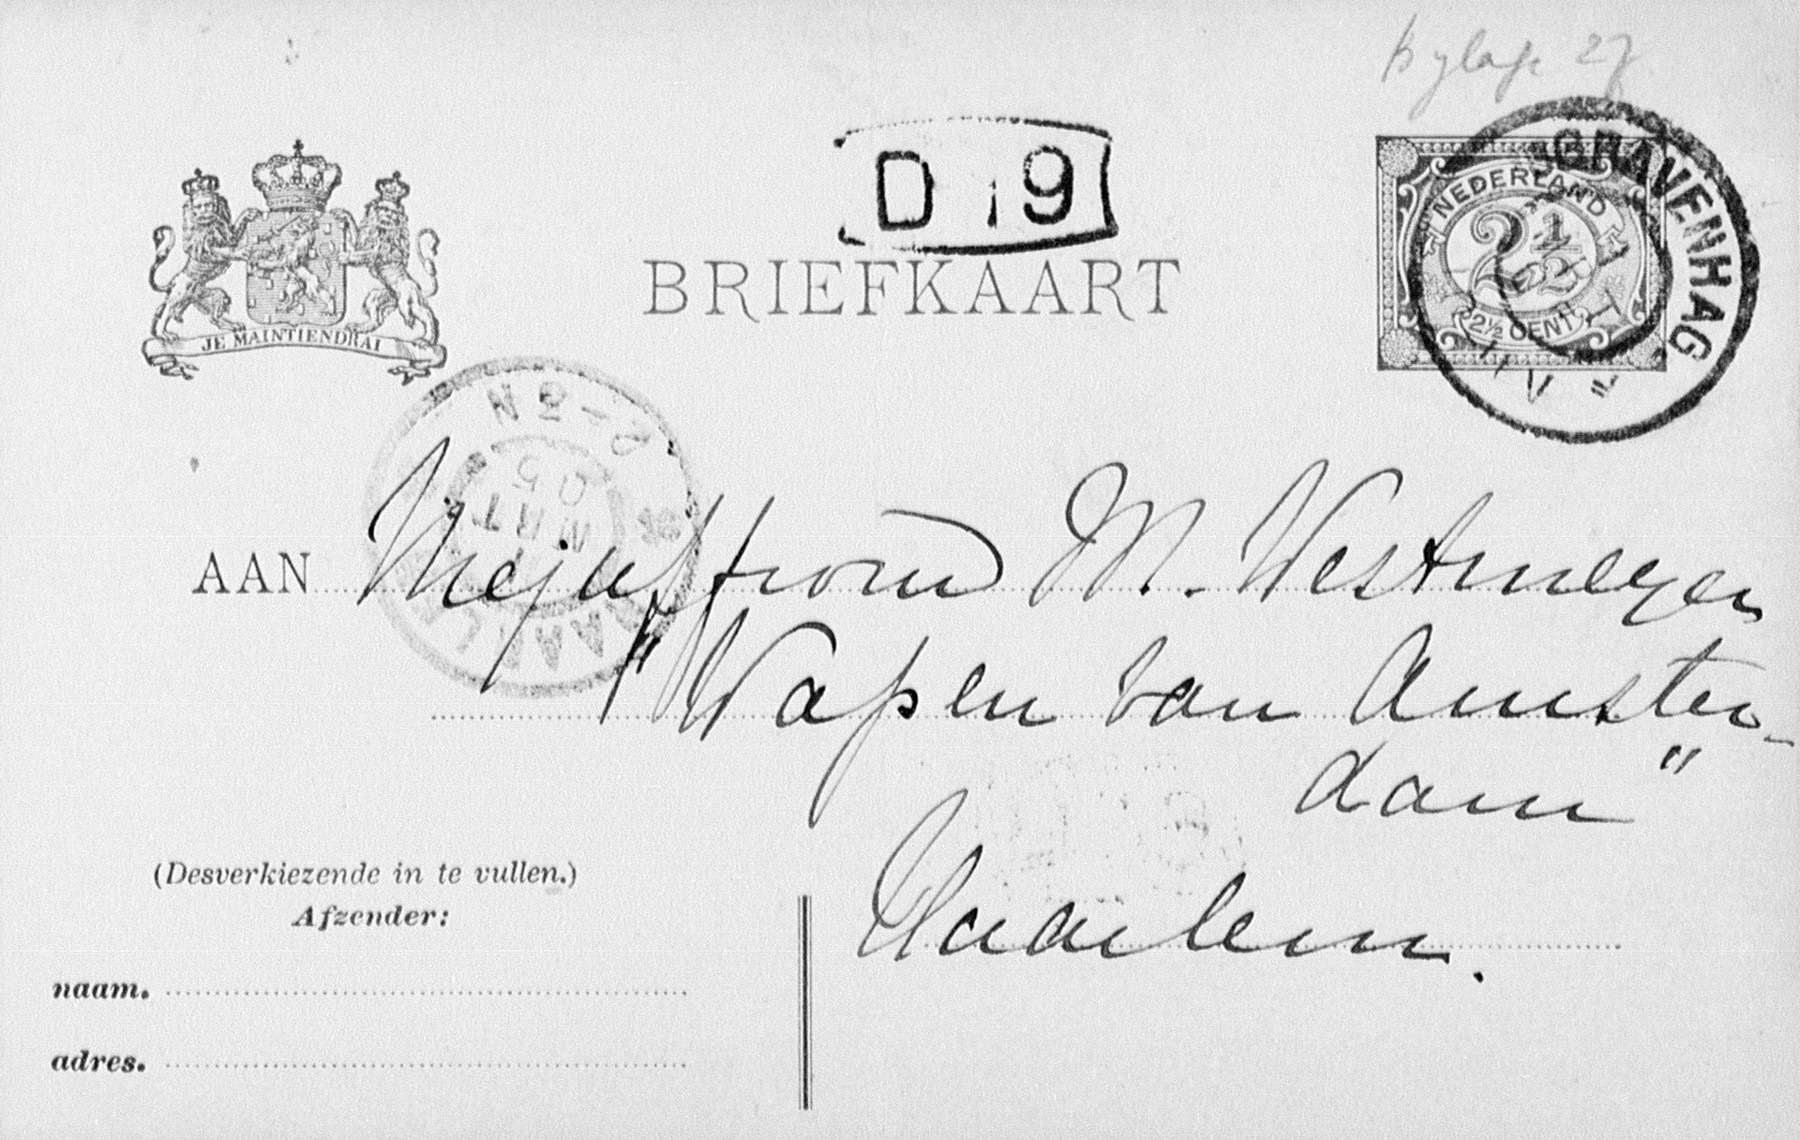 Bylage 27
D 19
JE MAINTIENDRAI
BRIEFKAART
NEDERLAND
2 1/2
2½ CENT
GRAVENHAG
2-3N
MRT
05
HAARLEM
AAN Mejuffrouw M. Westmeyer
"Wapen van Amster-
dam"
Haarlem.
(Desverkiezende in te vullen.)
Afzender:
naam.
adres.